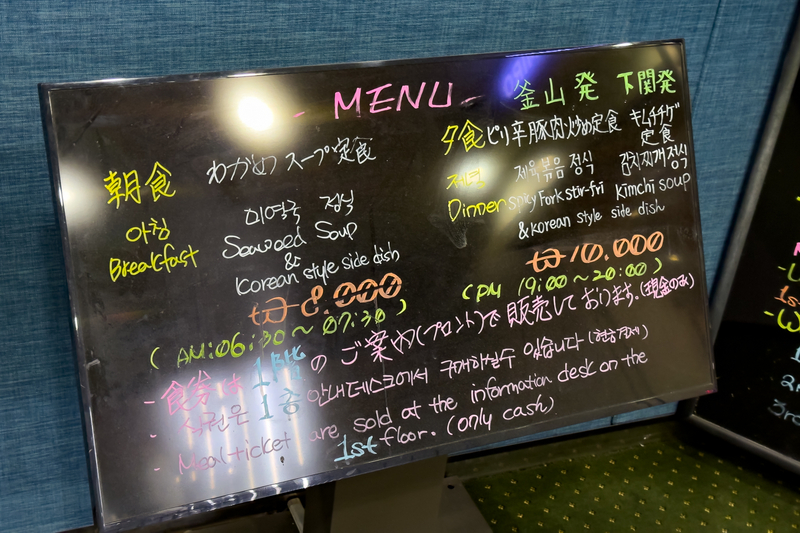 - MENU -
釜山発 下関発
朝食
わかめスープ定食
아침
미역국 정식
Breakfast
Seaweed Soup
&
Korean style side dish
₩ 8.000
( AM:06:30 ~ 07:30 )
夕食 ピリ辛豚肉炒め定食 キムチチゲ定食
저녁 제육볶음 정식 김치찌개정식
Dinner Spicy Pork stir-fri kimchi soup
& Korean style side dish
₩ 10.000
(PM 19:00 ~ 20:00 )
- 食券は 1階 の ご案内(フロント)で 販売しております。(現金のみ)
- 식권은 1층 안내데스크에서 구매하실수 있습니다 (현금결제)
- Meal-ticket are sold at the information desk on the
1st floor. (only cash)
1s
2n
3rd